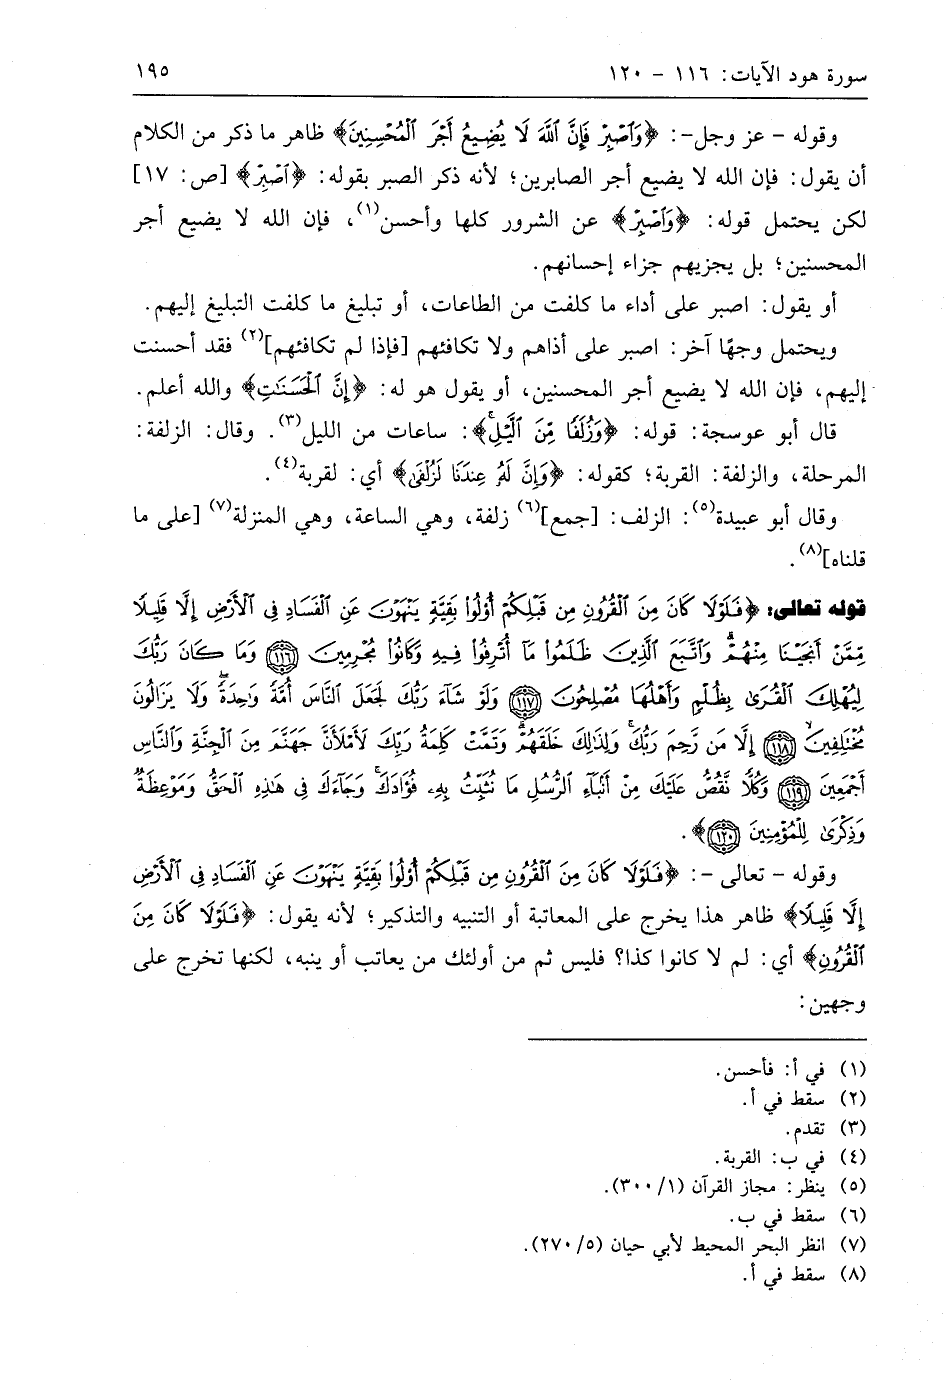 سورة هود الآيات: ١١٦ - ١٢٠
١٩٥
وقوله - عز وجل-: ﴿وَٱصْبِرْ فَإِنَّ ٱللَّهَ لَا يُضِيعُ أَجْرَ ٱلْمُحْسِنِينَ﴾ ظاهر ما ذكر من الكلام
أن يقول: فإن الله لا يضيع أجر الصابرين؛ لأنه ذكر الصبر بقوله: ﴿ٱصْبِرْ﴾ [ص: ١٧]
لكن يحتمل قوله: ﴿وَٱصْبِرْ﴾ عن الشرور كلها وأحسن(١)، فإن الله لا يضيع أجر
المحسنين؛ بل يجزيهم جزاء إحسانهم.
أو يقول: اصبر على أداء ما كلفت من الطاعات، أو تبليغ ما كلفت التبليغ إليهم.
ويحتمل وجهًا آخر: اصبر على أذاهم ولا تكافئهم [فإذا لم تكافئهم](٢) فقد أحسنت
إليهم، فإن الله لا يضيع أجر المحسنين، أو يقول هو له: ﴿إِنَّ ٱلْحَسَنَـٰتِ﴾ والله أعلم.
قال أبو عوسجة: قوله: ﴿وَزُلَفًا مِّنَ ٱلَّيْلِۚ﴾: ساعات من الليل(٣). وقال: الزلفة:
المرحلة، والزلفة: القربة؛ كقوله: ﴿وَإِنَّ لَهُۥ عِندَنَا لَزُلْفَىٰ﴾ أي: لقربة(٤).
وقال أبو عبيدة(٥): الزلف: [جمع](٦) زلفة، وهي الساعة، وهي المنزلة(٧) [على ما
قلناه](٨).
قوله تعالى: ﴿فَلَوْلَا كَانَ مِنَ ٱلْقُرُونِ مِن قَبْلِكُمْ أُو۟لُوا۟ بَقِيَّةٍ يَنْهَوْنَ عَنِ ٱلْفَسَادِ فِى ٱلْأَرْضِ إِلَّا قَلِيلًا
مِّمَّنْ أَنجَيْنَا مِنْهُمْۗ وَٱتَّبَعَ ٱلَّذِينَ ظَلَمُوا۟ مَآ أُتْرِفُوا۟ فِيهِ وَكَانُوا۟ مُجْرِمِينَ ١١٦ وَمَا كَانَ رَبُّكَ
لِيُهْلِكَ ٱلْقُرَىٰ بِظُلْمٍ وَأَهْلُهَا مُصْلِحُونَ ١١٧ وَلَوْ شَآءَ رَبُّكَ لَجَعَلَ ٱلنَّاسَ أُمَّةً وَٰحِدَةًۖ وَلَا يَزَالُونَ
مُخْتَلِفِينَۙ ١١٨ إِلَّا مَن رَّحِمَ رَبُّكَۚ وَلِذَٰلِكَ خَلَقَهُمْۗ وَتَمَّتْ كَلِمَةُ رَبِّكَ لَأَمْلَأَنَّ جَهَنَّمَ مِنَ ٱلْجِنَّةِ وَٱلنَّاسِ
أَجْمَعِينَ ١١٩ وَكُلًّا نَّقُصُّ عَلَيْكَ مِنْ أَنۢبَآءِ ٱلرُّسُلِ مَا نُثَبِّتُ بِهِۦ فُؤَادَكَۚ وَجَآءَكَ فِى هَـٰذِهِ ٱلْحَقُّ وَمَوْعِظَةٌ
وَذِكْرَىٰ لِلْمُؤْمِنِينَ ١٢٠﴾.
وقوله - تعالى -: ﴿فَلَوْلَا كَانَ مِنَ ٱلْقُرُونِ مِن قَبْلِكُمْ أُو۟لُوا۟ بَقِيَّةٍ يَنْهَوْنَ عَنِ ٱلْفَسَادِ فِى ٱلْأَرْضِ
إِلَّا قَلِيلًا﴾ ظاهر هذا يخرج على المعاتبة أو التنبيه والتذكير؛ لأنه يقول: ﴿فَلَوْلَا كَانَ مِنَ
ٱلْقُرُونِ﴾ أي: لم لا كانوا كذا؟ فليس ثم من أولئك من يعاتب أو ينبه، لكنها تخرج على
وجهين:
(١) في أ: فأحسن.
(٢) سقط في أ.
(٣) تقدم.
(٤) في ب: القربة.
(٥) ينظر: مجاز القرآن (١/ ٣٠٠).
(٦) سقط في ب.
(٧) انظر البحر المحيط لأبي حيان (٥/ ٢٧٠).
(٨) سقط في أ.